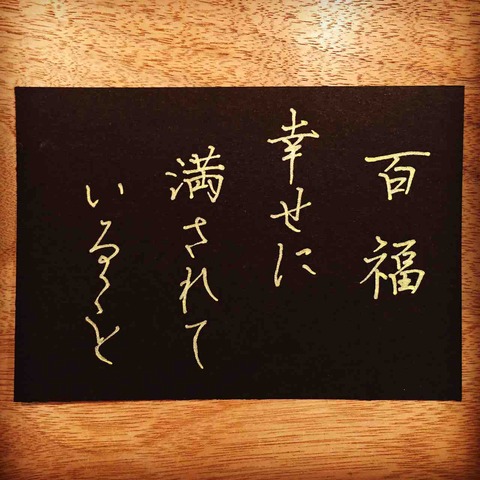 百福
幸せに
満されて
いるゝと